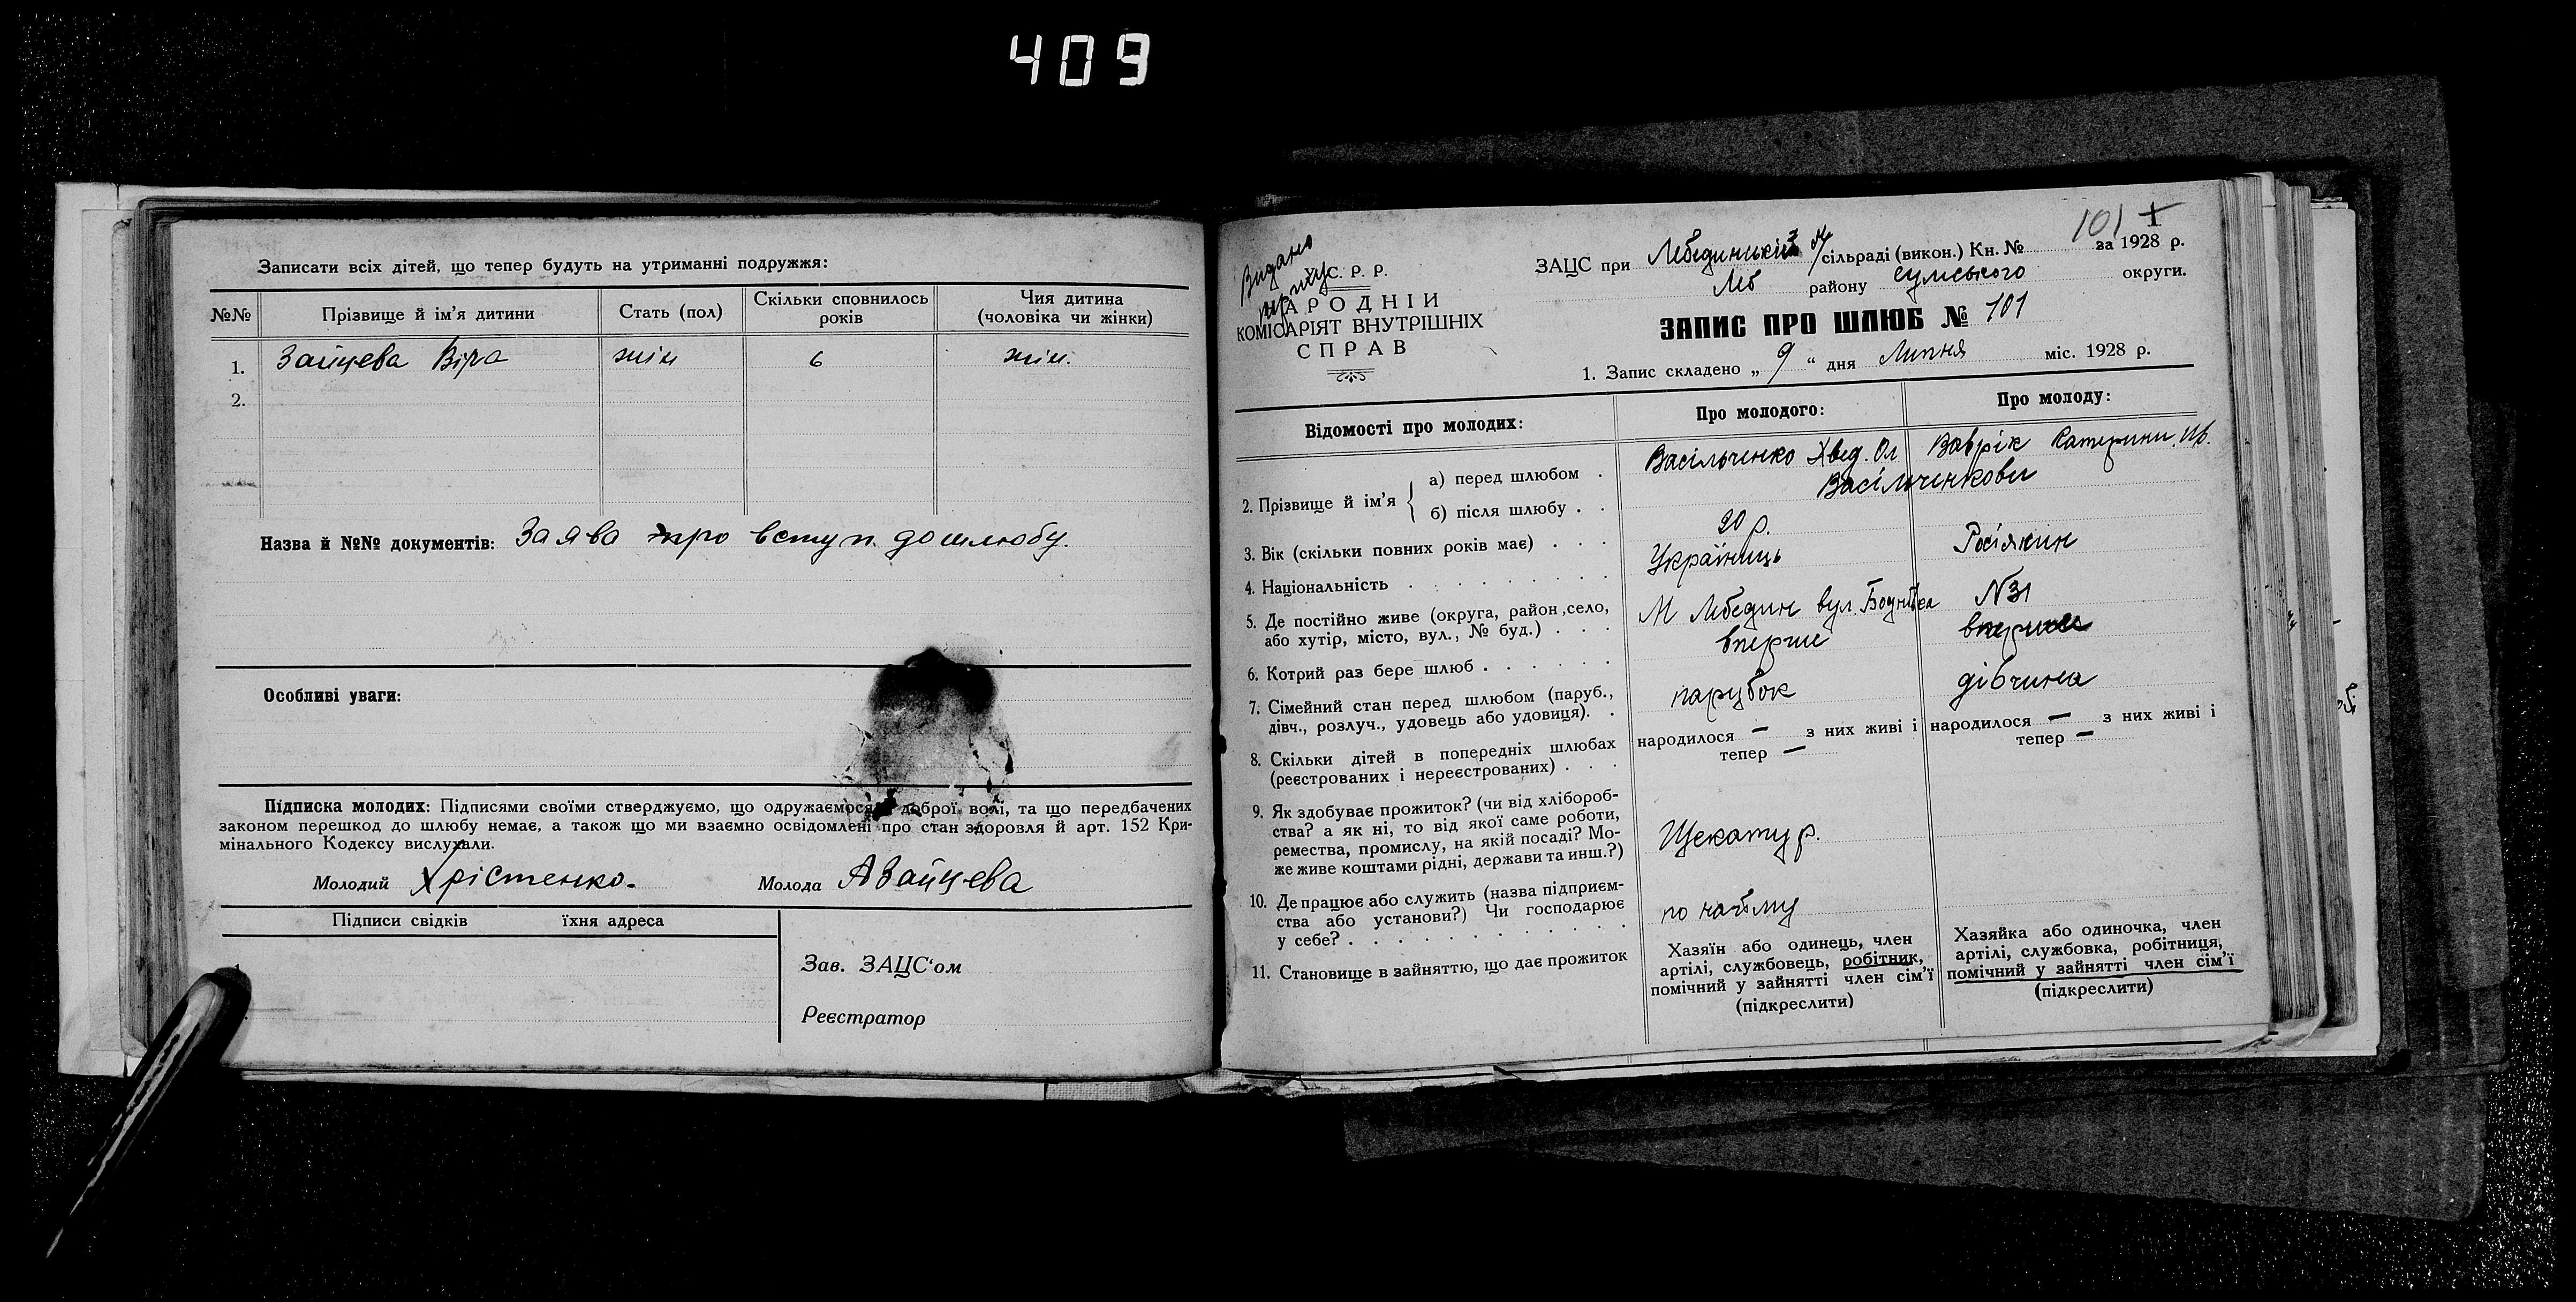 409
Записати всіх дітей, що тепер будуть на утриманні подружжя:
№№ Прізвище й ім’я дитини Стать (пол) Скільки сповнилось років Чия дитина (чоловіка чи жінки)
1. Зайцева Віра жін 6 жін.
2.
Назва й №№ документів: Заява про вступ. до шлюбу.
Особливі уваги:
Підписка молодих: Підписями своїми стверджуємо, що одружаємося з доброї волі, та що передбачених
законом перешкод до шлюбу немає, а також що ми взаємно освідомлені про стан здоровля й арт. 152 Кри-
мінального Кодексу вислухали.
Молодий Хрістенко. Молода А Зайцева
Підписи свідків їхня адреса
Зав. ЗАЦС‘ом
Реєстратор
Видано
С. Р. Р.
НАРОДНІЙ
КОМІСАРІЯТ ВНУТРІШНІХ
СПРАВ
101 +
ЗАЦС при Лебединській м/сільраді (викон.) Кн. № за 1928 р.
Леб району Сумського округи.
ЗАПИС ПРО ШЛЮБ № 101
1. Запис складено „ 9 “ дня Липня міс. 1928 р.
Відомості про молодих: Про молодого: Про молоду:
2. Прізвище й ім’я
а) перед шлюбом . Васільченко Хвед. Ол Ваврік Катерини Ив.
б) після шлюбу . . Васільченкови
3. Вік (скільки повних років має) . . . 20 р.
4. Національність . . . . . . . . . Україниць Росіякин
5. Де постійно живе (округа, район, село,
або хутір, місто, вул., № буд.) . . . М Лебедин вул. N 31
6. Котрий раз бере шлюб . . . . . . вперше вперше
7. Сімейний стан перед шлюбом (паруб.,
дівч., розлуч., удовець або удовиця). . парубок дівчина
8. Скільки дітей в попередніх шлюбах
(реєстрованих і нереєстрованих) . . .
народилося — з них живі і
тепер —
народилося — з них живі і
тепер —
9. Як здобуває прожиток? (чи від хлібороб-
ства? а як ні, то від якої саме роботи,
ремества, промислу, на якій посаді? Мо-
же живе коштами рідні, держави та инш.?)
Щекатур.
10. Де працює або служить (назва підприєм-
ства або установи?) Чи господарює
у себе? . . . . . . . . . . . .
по найму
11. Становище в зайняттю, що дає прожиток
Хазяїн або одинець, член
артілі, службовець, робітник,
помічний у зайнятті член сім’ї
(підкреслити)
Хазяйка або одиночка, член
артілі, службовка, робітниця,
помічний у зайнятті член сім’ї
(підкреслити)